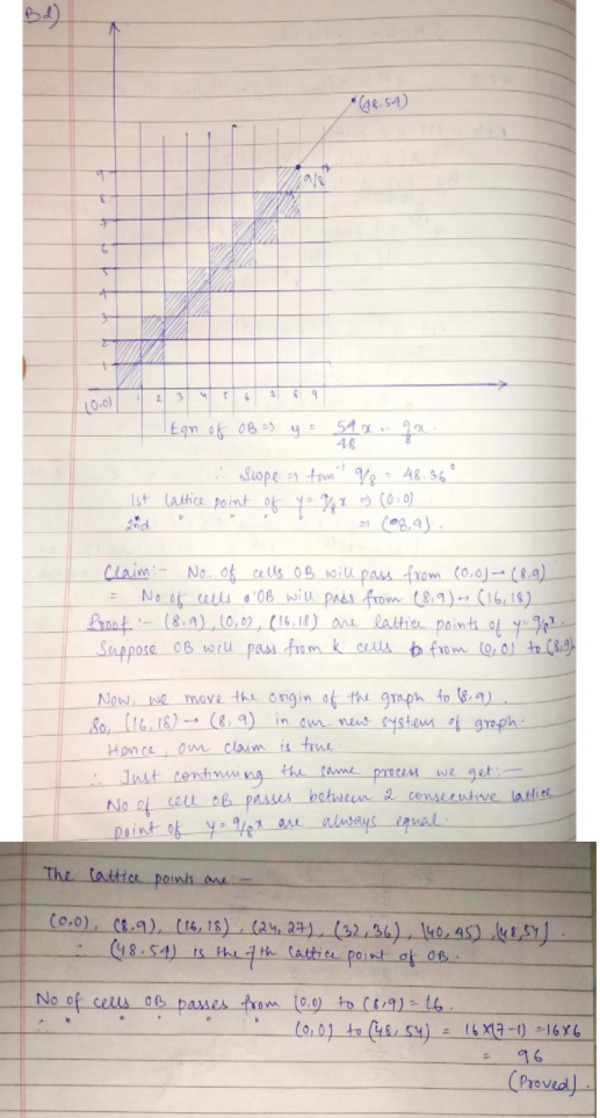 B2)
(48.54)
9/8 x
9
8
7
6
5
4
3
2
1
(0,0) 1 2 3 4 5 6 7 8 9
Eqn of OB => y = 54/48 x = 9/8 x.
∴ Slope => tan⁻¹ 9/8 = 48.36°
1st lattice point of y = 9/8 x => (0.0)
2nd " " " " => (8,9).
Claim:- No. of cells OB will pass from (0,0) → (8,9)
= No of cells OB will pass from (8,9) → (16,18)
Proof:- (8,9), (0,0), (16,18) are lattice points of y = 9/8 x.
Suppose OB will pass from k cells from (0,0) to (8,9)
Now, we move the origin of the graph to (8,9).
So, (16,18) → (8,9) in our new system of graph.
Hence, our claim is true.
∴ Just continuing the same process we get:-
No of cell OB passes between 2 consecutive lattice
point of y = 9/8 x are always equal.
The lattice points are:-
(0,0), (8,9), (16,18), (24,27), (32,36), (40,45), (48,54).
∴ (48.54) is the 7th lattice point of OB.
No of cells OB passes from (0,0) to (8,9) = 16.
∴ " " " " " (0,0) to (48,54) = 16×(7-1) = 16×6
= 96
(Proved).